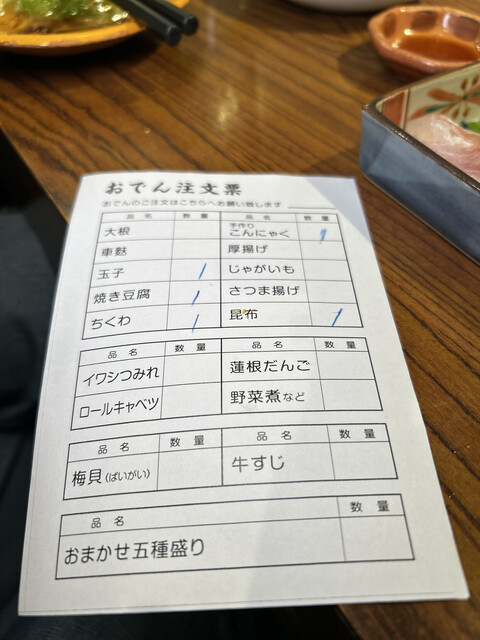 おでん注文票
おでんのご注文はこちらへお願い致します
品名 数量 品名 数量
大根 手作りこんにゃく 1
車麩 厚揚げ
玉子 1 じゃがいも
焼き豆腐 1 さつま揚げ
ちくわ 1 昆布 1
品名 数量 品名 数量
イワシつみれ 蓮根だんご
ロールキャベツ 野菜煮など
品名 数量 品名 数量
梅貝(ばいがい) 牛すじ
品名 数量
おまかせ五種盛り